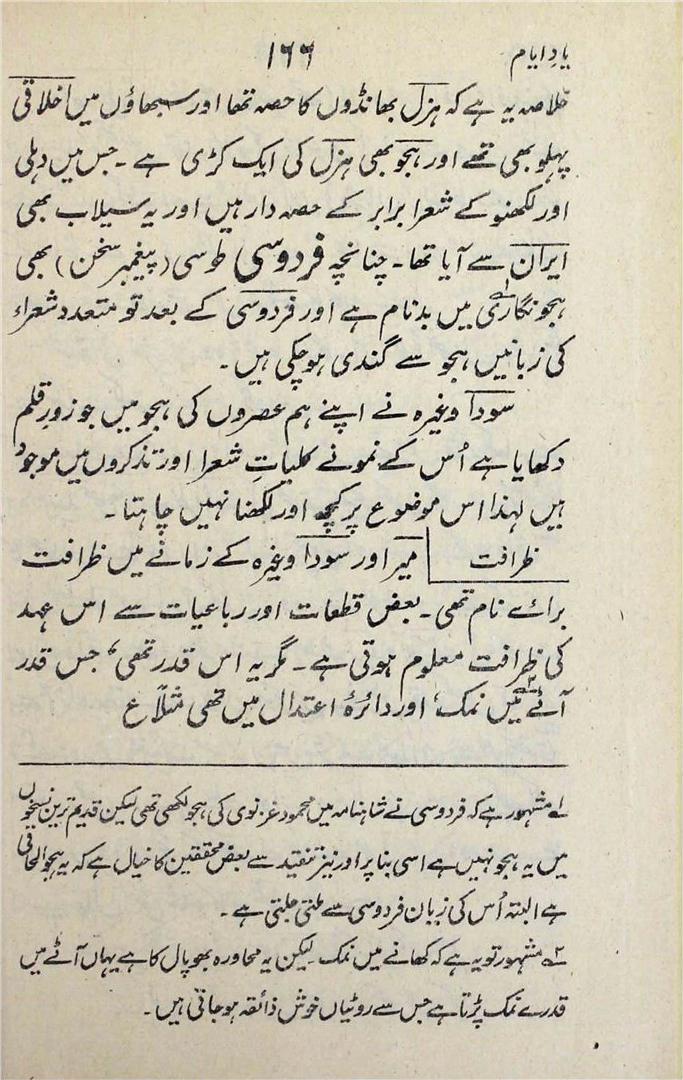 یادِ ایام
۱۶۶
خلاصہ یہ ہے کہ ہزل بھانڈوں کا حصہ تھا اور سبھاؤں میں اخلاقی
پہلو بھی تھے اور ہجو بھی ہزل کی ایک کڑی ہے ۔ جس میں دہلی
اور لکھنو کے شعرا برابر کے حصہ دار ہیں اور یہ سیلاب بھی
ایران سے آیا تھا ۔ چنانچہ فردوسی طوسی (پیغمبر سخن) بھی
ہجو نگاری۱ میں بدنام ہے اور فردوسی کے بعد تو متعدد شعراء
کی زبانیں ہجو سے گندی ہو چکی ہیں ۔
سودا وغیرہ نے اپنے ہم عصروں کی ہجو میں جو زور قلم
دکھایا ہے اُس کے نمونے کلیاتِ شعرا اور تذکروں میں موجود
ہیں لہٰذا اس موضوع پر کچھ اور لکھنا نہیں چاہتا ۔
ظرافت میر اور سودا وغیرہ کے زمانے میں ظرافت
برائے نام تھی ۔ بعض قطعات اور رباعیات سے اس عہد
کی ظرافت معلوم ہوتی ہے ۔ مگر یہ اس قدر تھی، جس قدر
آٹے۲ میں نمک، اور دائرۂ اعتدال میں تھی مثلاً ع
۱؎ مشہور ہے کہ فردوسی نے شاہنامہ میں محمود غزنوی کی ہجو لکھی تھی لیکن قدیم ترین نسخوں
میں یہ ہجو نہیں ہے اسی بنا پر اور نیز تنقید سے بعض محققین کا خیال ہے کہ یہ ہجو الحاقی
ہے البتہ اُس کی زبان فردوسی سے ملتی جلتی ہے ۔
۲؎ مشہور تو یہ ہے کہ کھانے میں نمک لیکن یہ محاورہ بھوپال کا ہے یہاں آٹے میں
قدرے نمک پڑتا ہے جس سے روٹیاں خوش ذائقہ ہو جاتی ہیں ۔